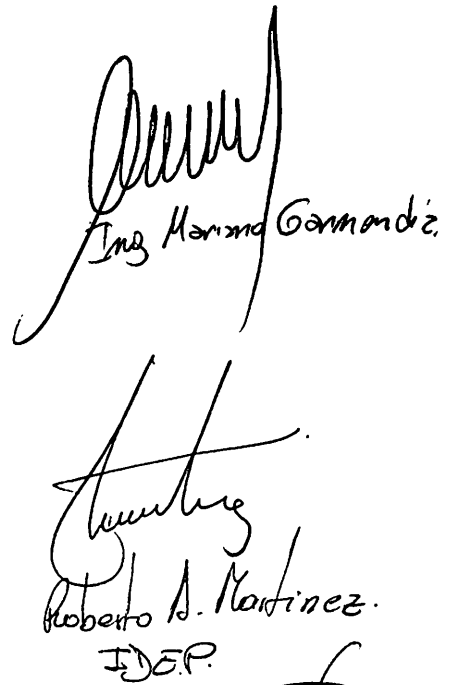 Ing Mariano Garmendia.
Roberto A. Martinez.
I.D.E.P.